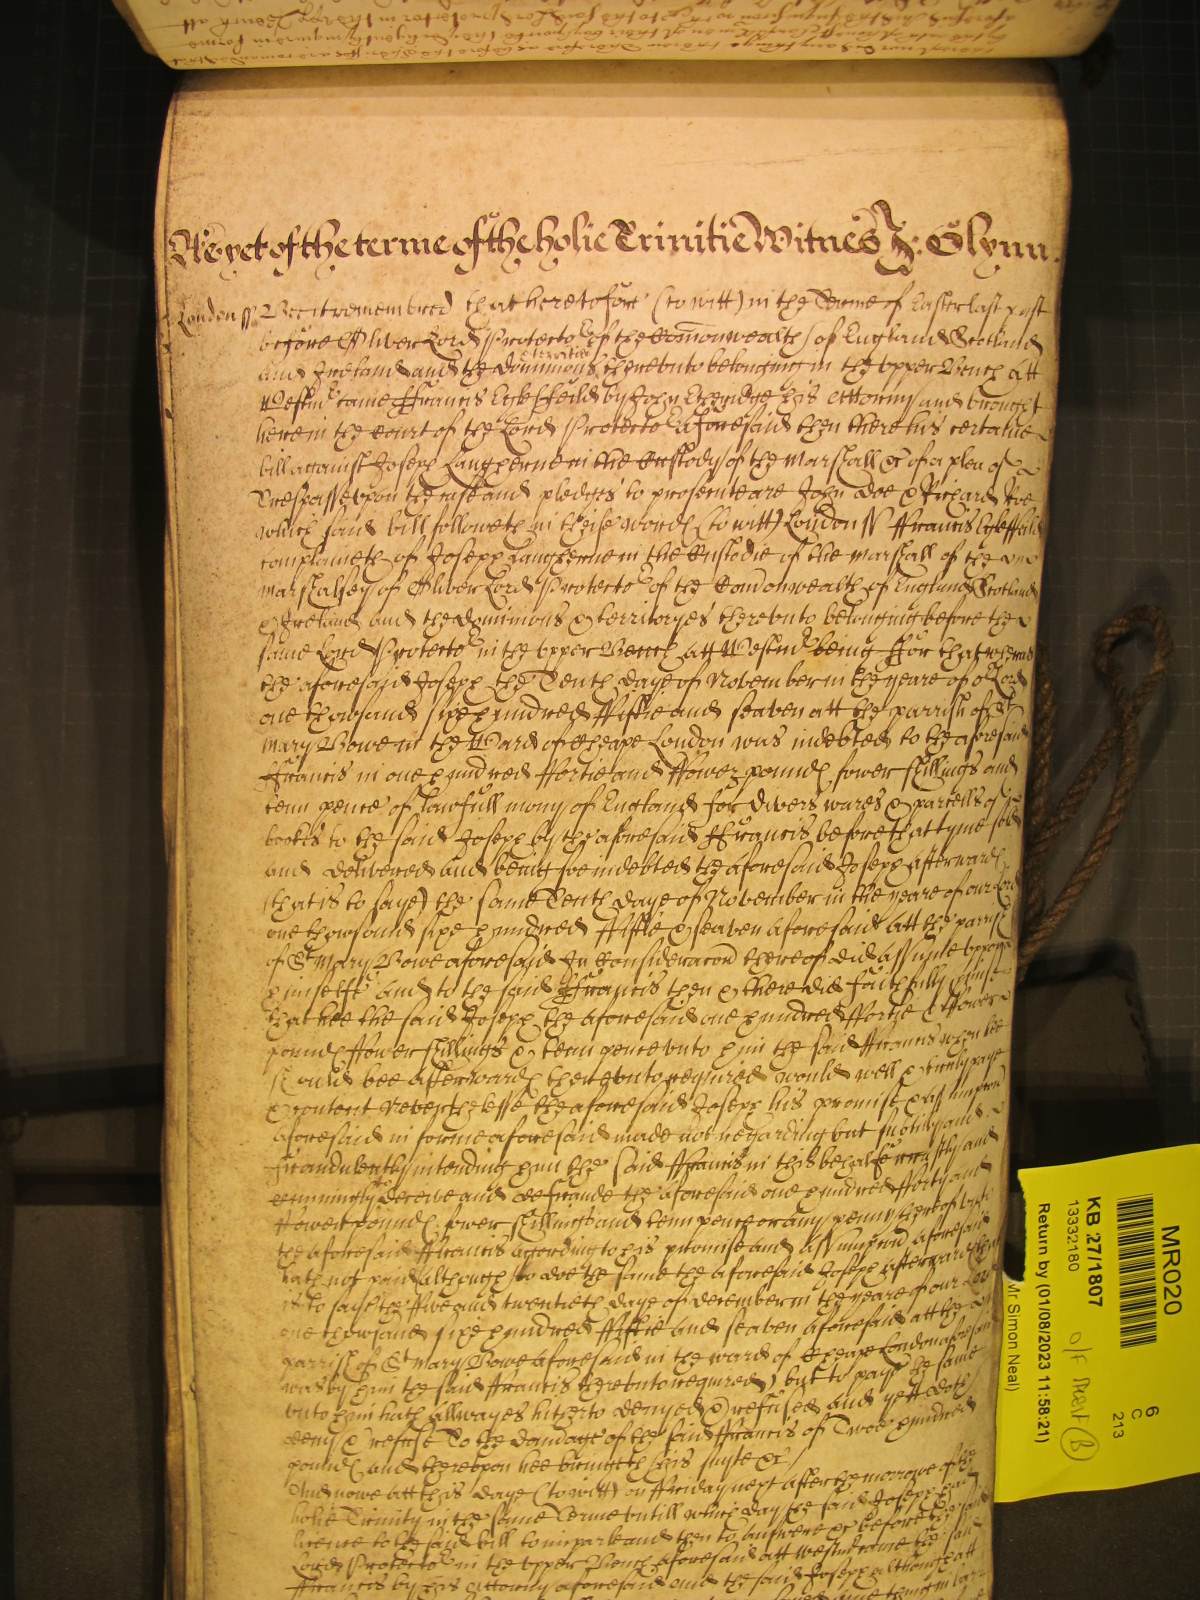 As yet of the terme of the holie Trinitie Witnes Jo: Glynn.
London ss Bee it remembred that heretofore (to witt) in the Terme of Easter last past
before Oliver Lord Protector of the Comonwealth of England Scotland
and Ireland and the dominions & territories thereunto belonging in the upper Bench att
Westmr came Ffrancis Eglesfeild by John Etheridge his attorny and brought
here in the Court of the Lord Protector aforesaid then there his certaine
bill against Joseph Langherne in the Custody of the Marshall &c of a plea of
Trespasse upon the case and pledges to prosecute are John Doe & Richard Roe
which said bill followeth in theise words (to witt) London ss Ffrancis Eglesfeild
complaineth of Joseph Langherne in the Custodie of the Marshall of the
Marshalsey of Oliver Lord Protector of the Comonwealth of England Scotland
& Ireland and the dominions & territoryes thereunto belonging before the
same Lord Protector in the upper Bench att Westmr being Ffor that whereas
the aforesaid Joseph the Tenth daye of November in the yeare of or Lord
one thowsand sixe hundred Ffiftie and seaven att the parrish of St
Mary Bowe in the Ward of Cheape London was indebted to the aforesaid
Ffrancis in one hundred Ffortie and Ffower pounds fower shillings and
tenn pence of lawfull mony of England for divers wares & parcells of
bookes to the said Joseph by the aforesaid Ffrancis before that tyme sold
and delivered and being soe indebted the aforesaid Joseph afterwards
(that is to saye) the same Tenth daye of November in the yeare of our Lord
one thowsand sixe hundred Ffiftie & seaven aforesaid att the parish
of St Mary Bowe aforesaid In Consideracon thereof did assume uppon
himselfe and to the said Ffrancis then & there did faithfully promise
that hee the said Joseph the aforesaid one hundred Ffortie & Ffower
pounds Ffower shillings & tenn pence unto him the said Ffrancis when hee
should bee afterwards thereunto required would well & truely paye
& content Neverthelesse the aforesaid Joseph his promise & assumpcon
aforesaid in forme aforesaid made not regarding but subtilly and
fraudulently intending him the said Ffrancis in this behalfe craftly and
cunningly to deceive and defraude the aforesaid one hundred Fforty and
Ffower pounds fower shillings and tenn pence or any penny thereof unto
the aforesaid Ffrancis according to his promise and assumpcon aforesaid
hath not paid although to doe the same the aforesaid Joseph afterwards that
is to saye the Ffive and twentieth daye of december in the yeare of our Lord
one thowsand sixe hundred Ffiftie and seaven aforesaid att the
parrish of St Mary Bowe aforesaid in the ward of Cheape London aforesaid
was by him the said Ffrancis thereunto required) but to paye the same
unto him hath allwayes hitherto denyed & refused and yett doth
deny & refuse To the damage of the said Ffrancis of Twoe hundred
pounds and thereupon hee bringeth his suyte &c
And nowe att this daye (to witt) on Ffriday next after the morrowe of the
holie Trinity in the same Terme untill which day the said Joseph had
licence to the said bill to imparle and then to answere &c before the said
Lord Protector in the upper Bench aforesaid att Westmr came the said
Ffrancis by his attorny aforesaid and the said Joseph although att
MR020
6
C
213
KB 27/1807
13332180
Return by (01/08/2023 11:58:21)
Mr Simon Neal)
B